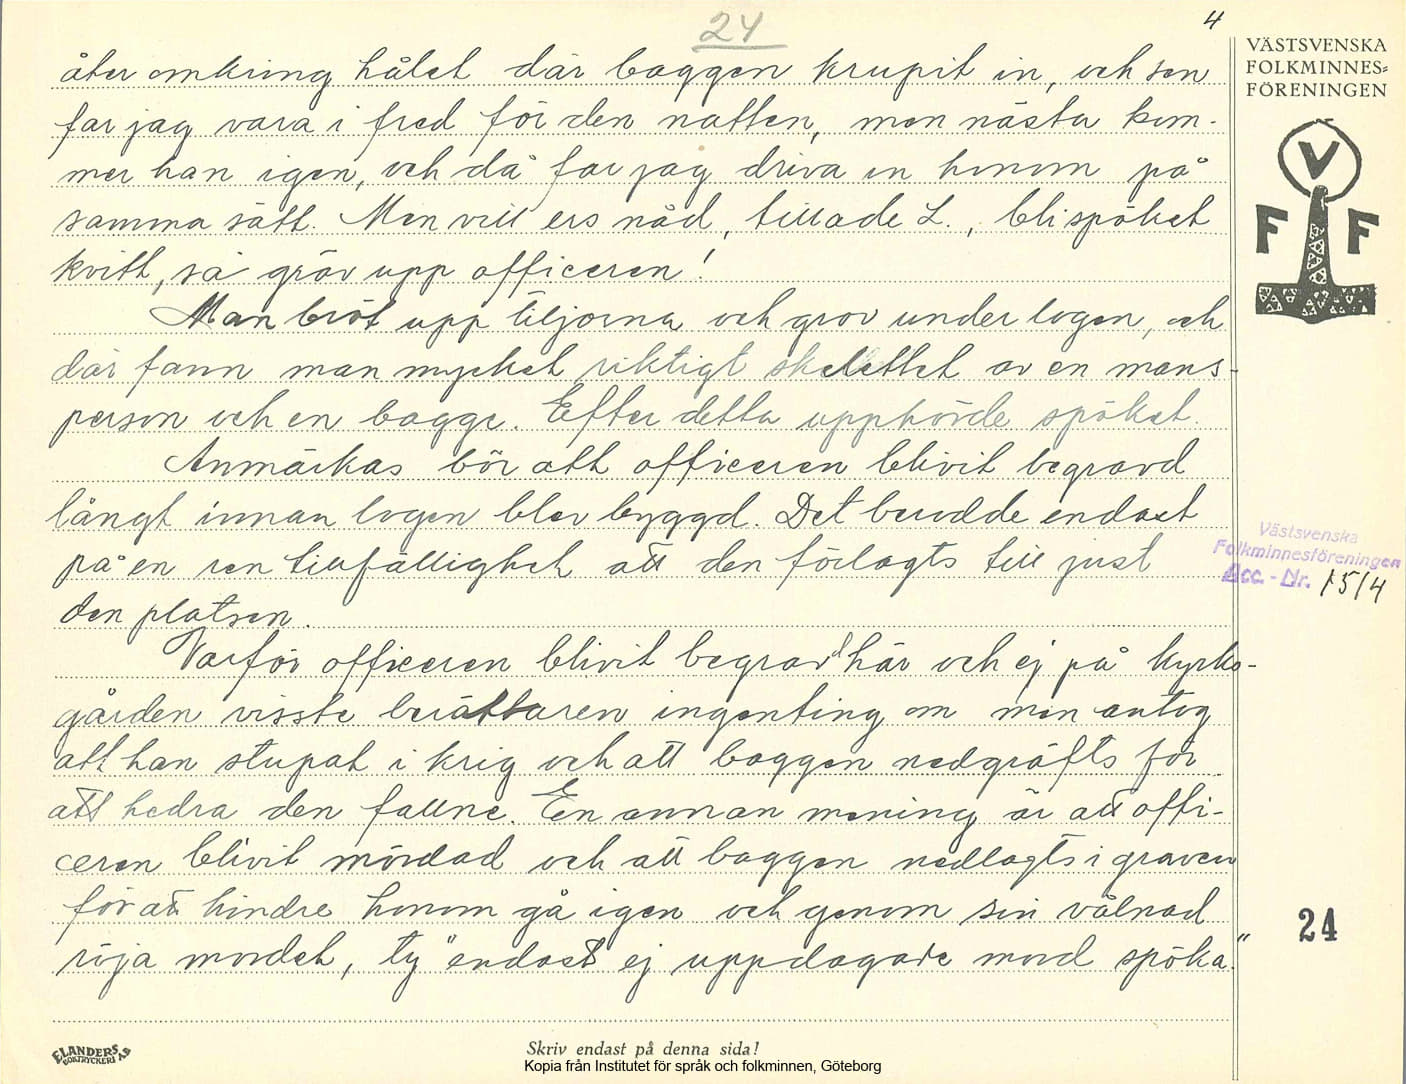 24
4
åter omkring hålet där baggen krupit in, och sen
far jag vara i fred för den natten, men nästa kom-
mer han igen, och då far jag driva in honom på
samma sätt. Men vill ers nåd, tillade L., bli spöket
kvitt, så gräv upp officeren!
Man bröt upp tiljorna och grov under logen, och
där fann man mycket riktigt skelettet av en mans-
person och en bagge. Efter detta upphörde spöket.
Anmärkas bör att officeren blivit begravd
långt innan logen blev byggd. Det berodde endast
på en ren tillfällighet att den förlagts till just
den platsen.
Varför officeren blivit begravd här och ej på kyrko-
gården visste berättaren ingenting om men antog
att han stupat i krig och att baggen nedgräfts för
att hedra den fallne. En annan mening är att offi-
ceren blivit mördad och att baggen nedlagts i graven
för att hindre honom gå igen och genom sin vålnad
röja mordet, ty "endast ej uppdagade mord spöka."
VÄSTSVENSKA
FOLKMINNES=
FÖRENINGEN
V
F F
Västsvenska
Folkminnesföreningen
Acc. - Nr. 1514
24
ELANDERS
BOKTRYCKERI AB
Skriv endast på denna sida!
Kopia från Institutet för språk och folkminnen, Göteborg